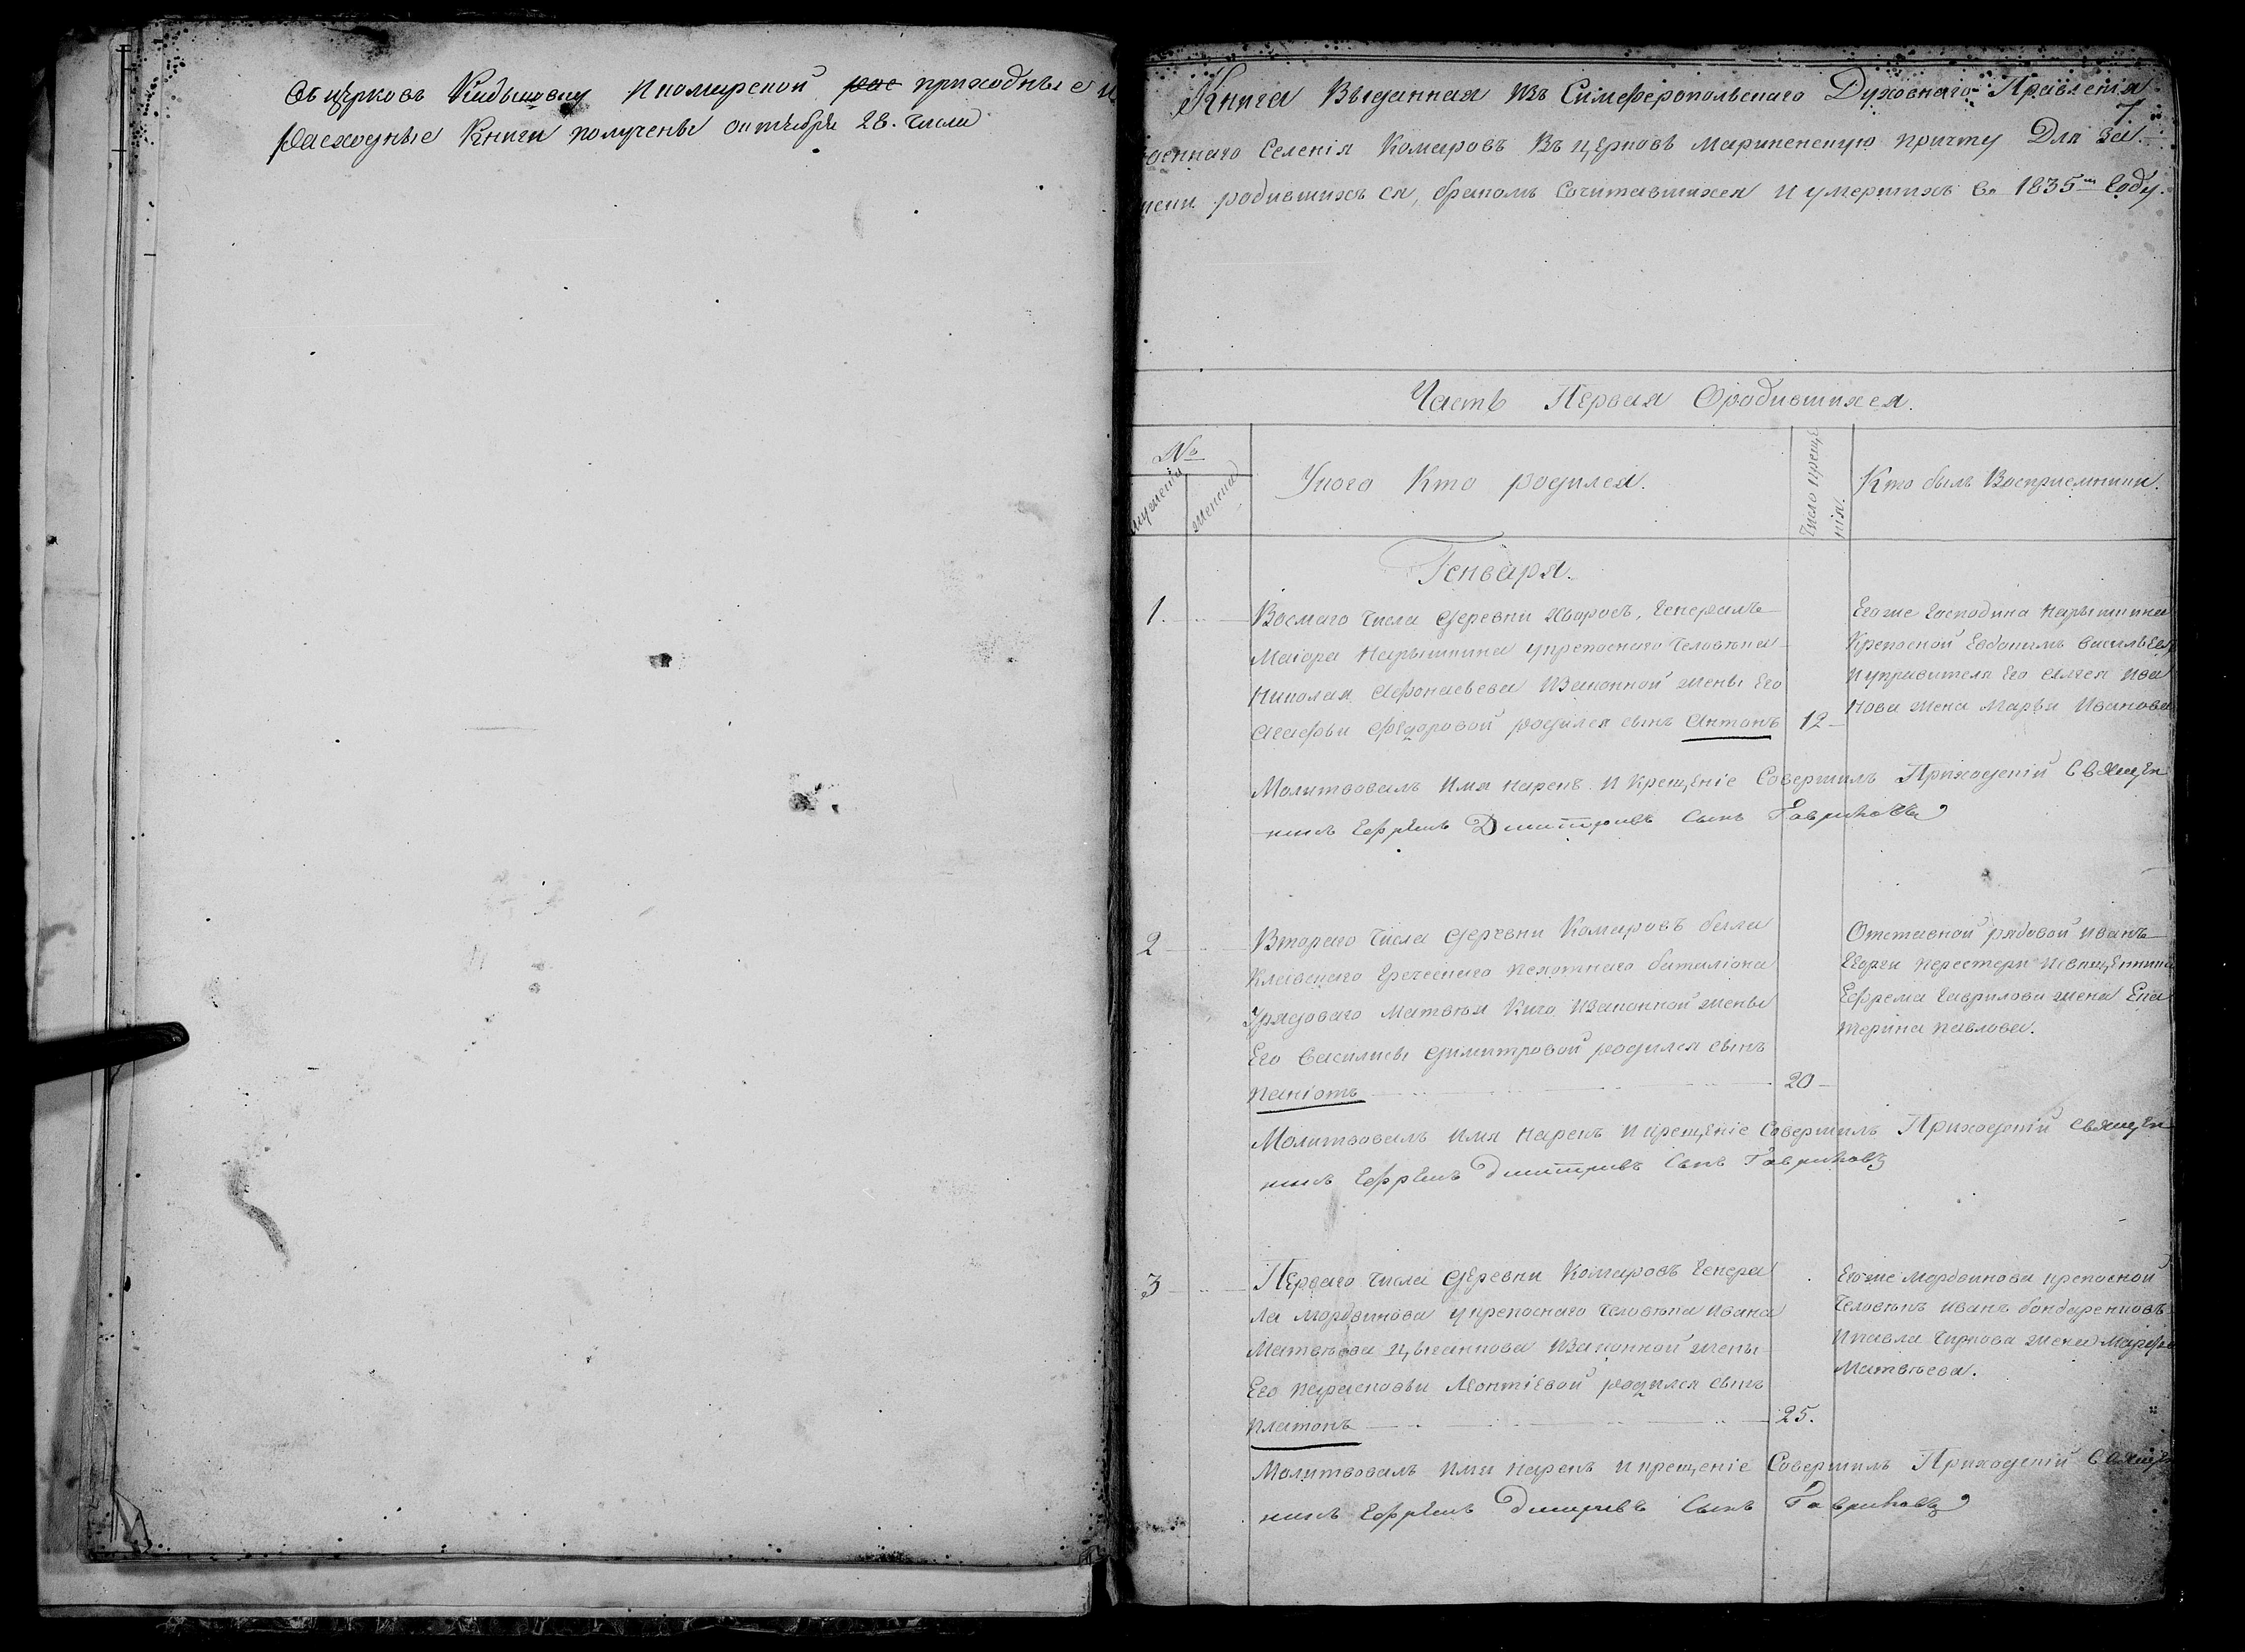 въ церковь Кадыковку и комарской рас приходные и
расходные Книги получены октября 28. числа
Книга Выданная изъ Симферопольскаго Духовнаго Правленія
7
Селенія Комаровъ Въ церковь Маріинскую причту Для за-
писи родившихъ ся, бракомъ Сочитавшихся и умершихъ во 1835м Году.
Часть Первая О родившихся.
№
мужеска
женска
У кого Кто родился.
Число креще
нія.
Кто былъ Восприемники.
Генваря.
1.
Восмаго числа деревни Генералъ
Маіора Нарышкина у крепоснаго человѣка
Николая Афонасьева и законной жены Его
Агафьи Федоровой родился сынъ Антонъ
12
Его же Господина Нарышкина
Крепосной Евдокимъ Васильевъ
и управителя Его Ива
нова жена Марья Иванова
Молитвовалъ имя нарекъ и Крещеніе Совершилъ Приходскій Священ
никъ Ефремъ Дмитривъ Сынъ Гавриловъ
2
Втораго числа деревни Комаровъ бала
клавскаго Греческаго пехотнаго баталіона
У рядоваго Матвѣя Кичо и законной жены
Его Василисы Димитровой родился сынъ
Паніотъ
20
Отставной рядовой Иванъ
Георги и священника
Ефрема Гаврилова жена Ека
терина Павлова.
Молитвовалъ имя нарекъ и крещеніе Совершилъ Приходскій Священ
никъ Ефремъ Дмитривъ Сынъ Гавриловъ
3
Перваго числа деревни Комаровъ Генера
ла Мордвинова у крепоснаго человѣка Ивана
Матвѣева Цыганкова и законной жены
Его Парасковьи Леонтіевой родился сынъ
Платонъ
25.
Его же Мордвинова крепосной
человѣкъ Иванъ Бондаренковъ
и Павла жена Марфа
Матвѣева.
Молитвовалъ имя нарекъ и крещеніе Совершилъ Приходскій Свяще
никъ Ефремъ Дмитривъ Сынъ Гавриловъ